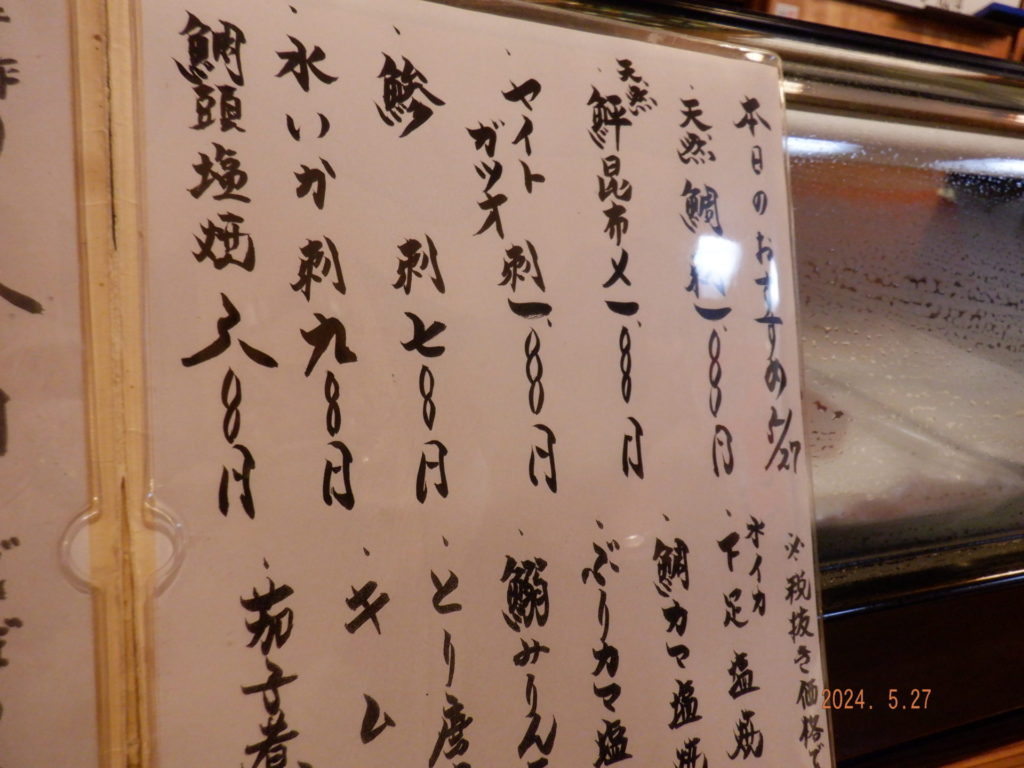 本日のおすすめ 5/27
天然鯛刺一、〇〇円
天然鮃昆布〆一、〇〇円
ヤイトガツオ刺一、〇〇円
鯵刺七〇〇円
水いか刺九〇〇円
鯛頭塩焼八〇〇円
※税抜き価格で
水イカ下足塩焼
鯛カマ塩焼
ぶりカマ塩
鰯みりん
とり唐
キム
茄子煮
2024. 5.27